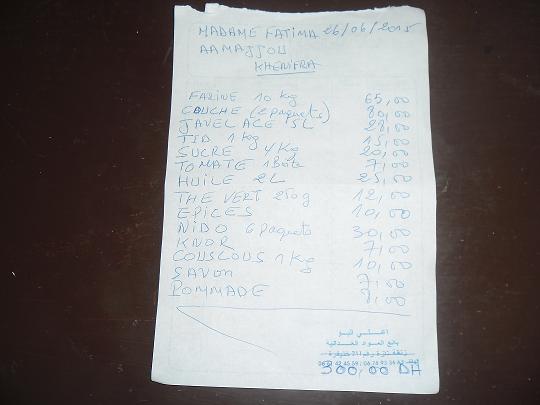 MADAME FATIMA 26/06/2015
AAMAJJOU
KHENIFRA
FARINE 10 Kg 65,00
COUCHE (2 paquets) 80,00
JAVEL ACE 5L 28,00
TID 1 Kg 15,00
SUCRE 4 Kg 20,00
TOMATE 1 Boite 7,00
HUILE 2L 25,00
THE VERT 250g 12,00
EPICES 10,00
NIDO 6 paquets 30,00
KNOR 7,00
COUSCOUS 1 Kg 10,00
SAVON 7,00
POMMADE 8,00
بائع المواد الغذائية
300,00 DH